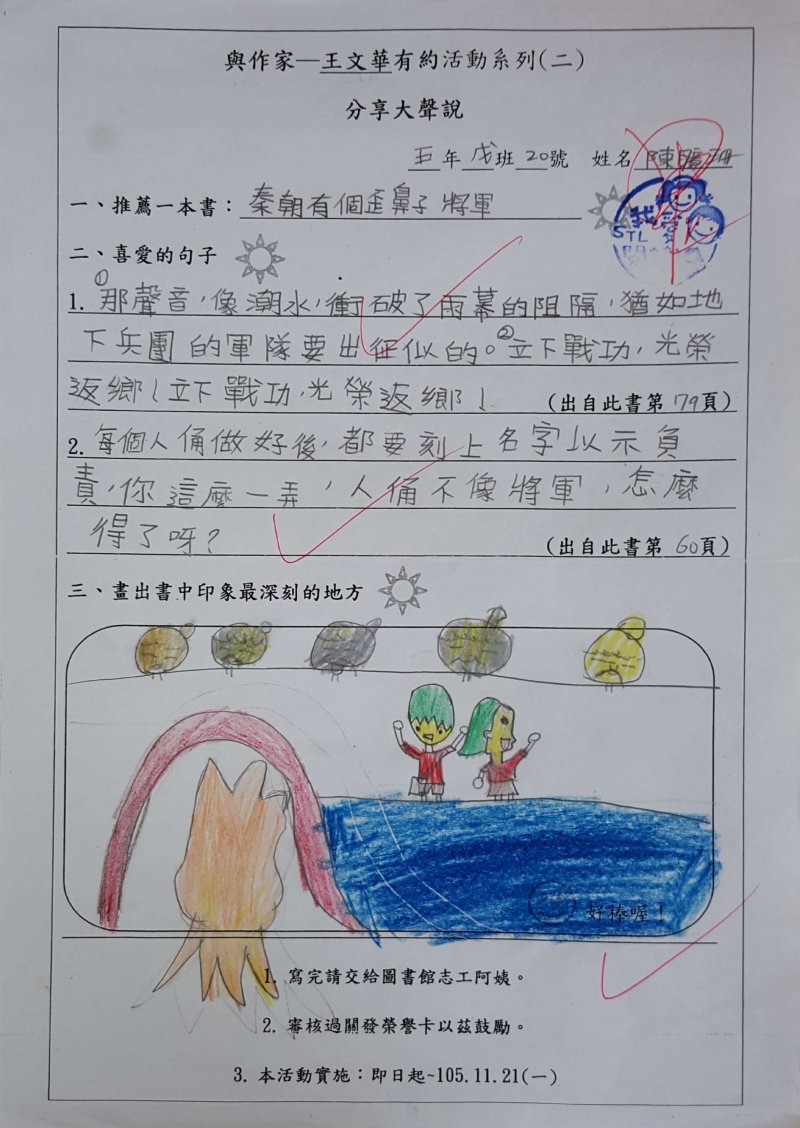 與作家—王文華有約活動系列(二)
分享大聲說
五年戊班20號 姓名陳
一、推薦一本書：秦朝有個歪鼻子將軍
我愛
STL
二、喜愛的句子
1. ①那聲音，像潮水，衝破了雨幕的阻隔，猶如地
下兵團的軍隊要出征似的。②立下戰功，光榮
返鄉！立下戰功，光榮返鄉！ (出自此書第79頁)
2. 每個人俑做好後，都要刻上名字以示負
責，你這麼一弄，人俑不像將軍，怎麼
得了呀？ (出自此書第60頁)
三、畫出書中印象最深刻的地方
好棒喔！
1. 寫完請交給圖書館志工阿姨。
2. 審核過關發榮譽卡以茲鼓勵。
3. 本活動實施：即日起~105.11.21(一)